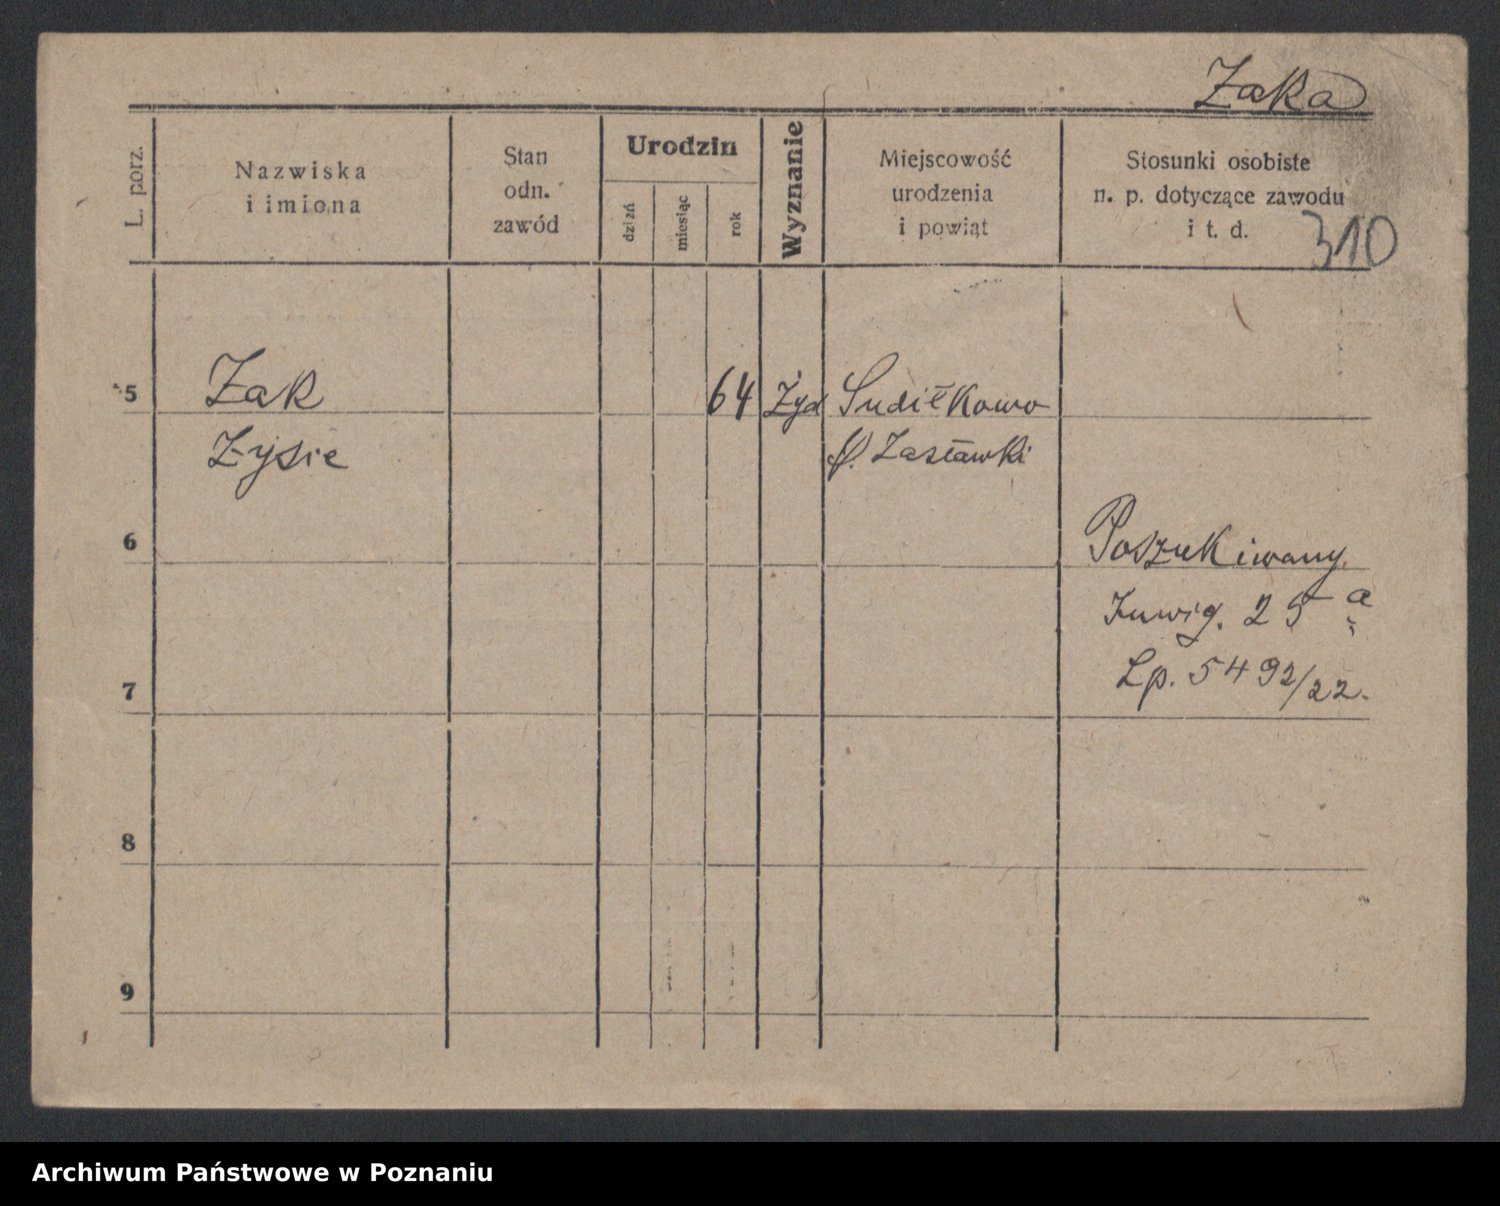 Zaka
L. porz.
Nazwiska
i imiona
Stan
odn.
zawód
Urodzin
dzień
miesiąc
rok
Wyznanie
Miejscowość
urodzenia
i powiat
Stosunki osobiste
n. p. dotyczące zawodu
i t. d.
310
5
Zak
64
Żyd
Sudiłkowo
Zysie
p. Zasławki
6
Poszukiwany
25 a
7
Lp. 5492/22.
8
9
Archiwum Państwowe w Poznaniu